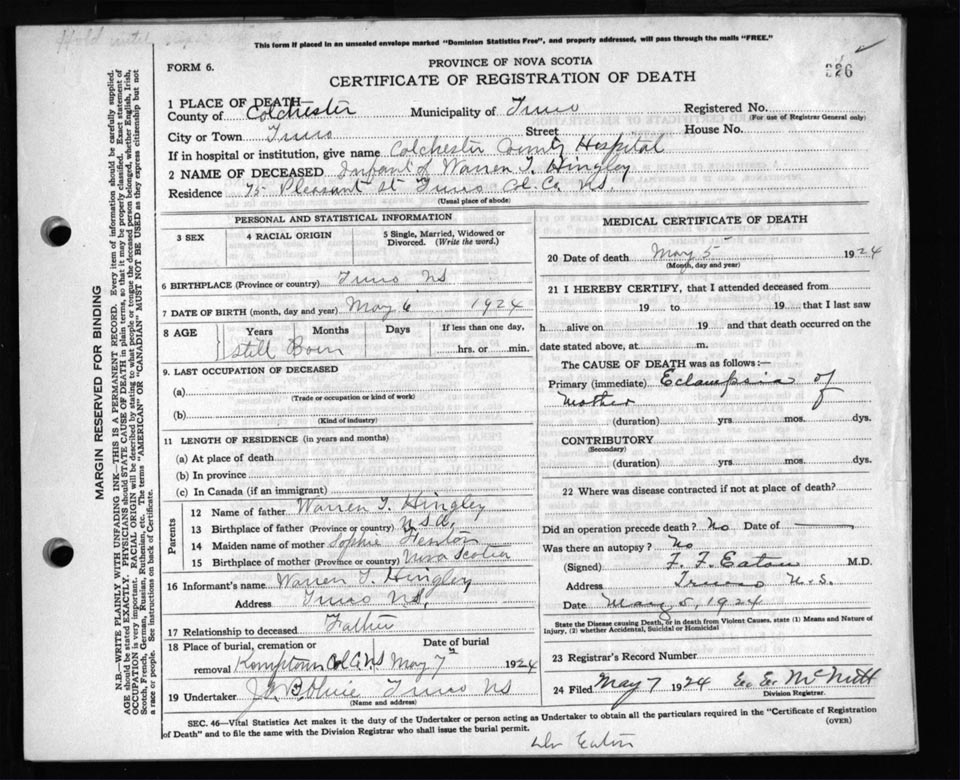 Hold until
This form if placed in an unsealed envelope marked "Dominion Statistics Free", and properly addressed, will pass through the mails "FREE."
FORM 6.
PROVINCE OF NOVA SCOTIA
326
CERTIFICATE OF REGISTRATION OF DEATH
1 PLACE OF DEATH—
County of Colchester Municipality of Truro Registered No.
(For use of Registrar General only)
City or Town Truro Street House No.
If in hospital or institution, give name Colchester County Hospital
2 NAME OF DECEASED Infant of Warren T. Hingley
Residence 75 Pleasant St Truro Col. Co. N.S.
(Usual place of abode)
PERSONAL AND STATISTICAL INFORMATION
3 SEX 4 RACIAL ORIGIN 5 Single, Married, Widowed or Divorced. (Write the word.)
6 BIRTHPLACE (Province or country) Truro NS
7 DATE OF BIRTH (month, day and year) May 6 1924
8 AGE Years Months Days If less than one day,
Still Born hrs. or min.
9. LAST OCCUPATION OF DECEASED
(a)
(Trade or occupation or kind of work)
(b)
(Kind of industry)
11 LENGTH OF RESIDENCE (in years and months)
(a) At place of death
(b) In province
(c) In Canada (if an immigrant)
Parents
12 Name of father Warren T. Hingley
13 Birthplace of father (Province or country) U.S.A.
14 Maiden name of mother Sophie
15 Birthplace of mother (Province or country) Nova Scotia
16 Informant's name Warren T. Hingley
Address Truro NS,
17 Relationship to deceased Father
18 Place of burial, cremation or Date of burial
removal Kemptown Col. Co. NS May 7 1924
19 Undertaker Truro NS
(Name and address)
MEDICAL CERTIFICATE OF DEATH
20 Date of death May 5 1924
(Month, day and year)
21 I HEREBY CERTIFY, that I attended deceased from
19 to 19 that I last saw
h alive on 19 and that death occurred on the
date stated above, at m.
The CAUSE OF DEATH was as follows:—
Primary (immediate) Eclampsia of
Mother
(duration) yrs. mos. dys.
CONTRIBUTORY
(Secondary)
(duration) yrs. mos. dys.
22 Where was disease contracted if not at place of death?
Did an operation precede death? No Date of —
Was there an autopsy? No
(Signed) F. F. Eaton M.D.
Address Truro N.S.
Date May 5, 1924
State the Disease Causing Death, or in death from Violent Causes, state (1) Means and Nature of
Injury, (2) whether Accidental, Suicidal or Homicidal
23 Registrar's Record Number
24 Filed May 7 1924 McNutt
Division Registrar.
SEC. 46—Vital Statistics Act makes it the duty of the Undertaker or person acting as Undertaker to obtain all the particulars required in the "Certificate of Registration
of Death" and to file the same with the Division Registrar who shall issue the burial permit. (OVER)
Dr Eaton
MARGIN RESERVED FOR BINDING
N.B.—WRITE PLAINLY WITH UNFADING INK—THIS IS A PERMANENT RECORD. Every item of information should be carefully supplied.
AGE should be stated EXACTLY. PHYSICIANS should STATE CAUSE OF DEATH in plain terms, so that it may be properly classified. Exact statement of
OCCUPATION is very important. RACIAL ORIGIN will be described by stating to what people or tongue the deceased person belonged, whether English, Irish,
Scotch, French, German, Russian, Ruthenian, etc. The terms "AMERICAN" OR "CANADIAN" MUST NOT BE USED as they express citizenship but not
a race or people. See instructions on back of Certificate.